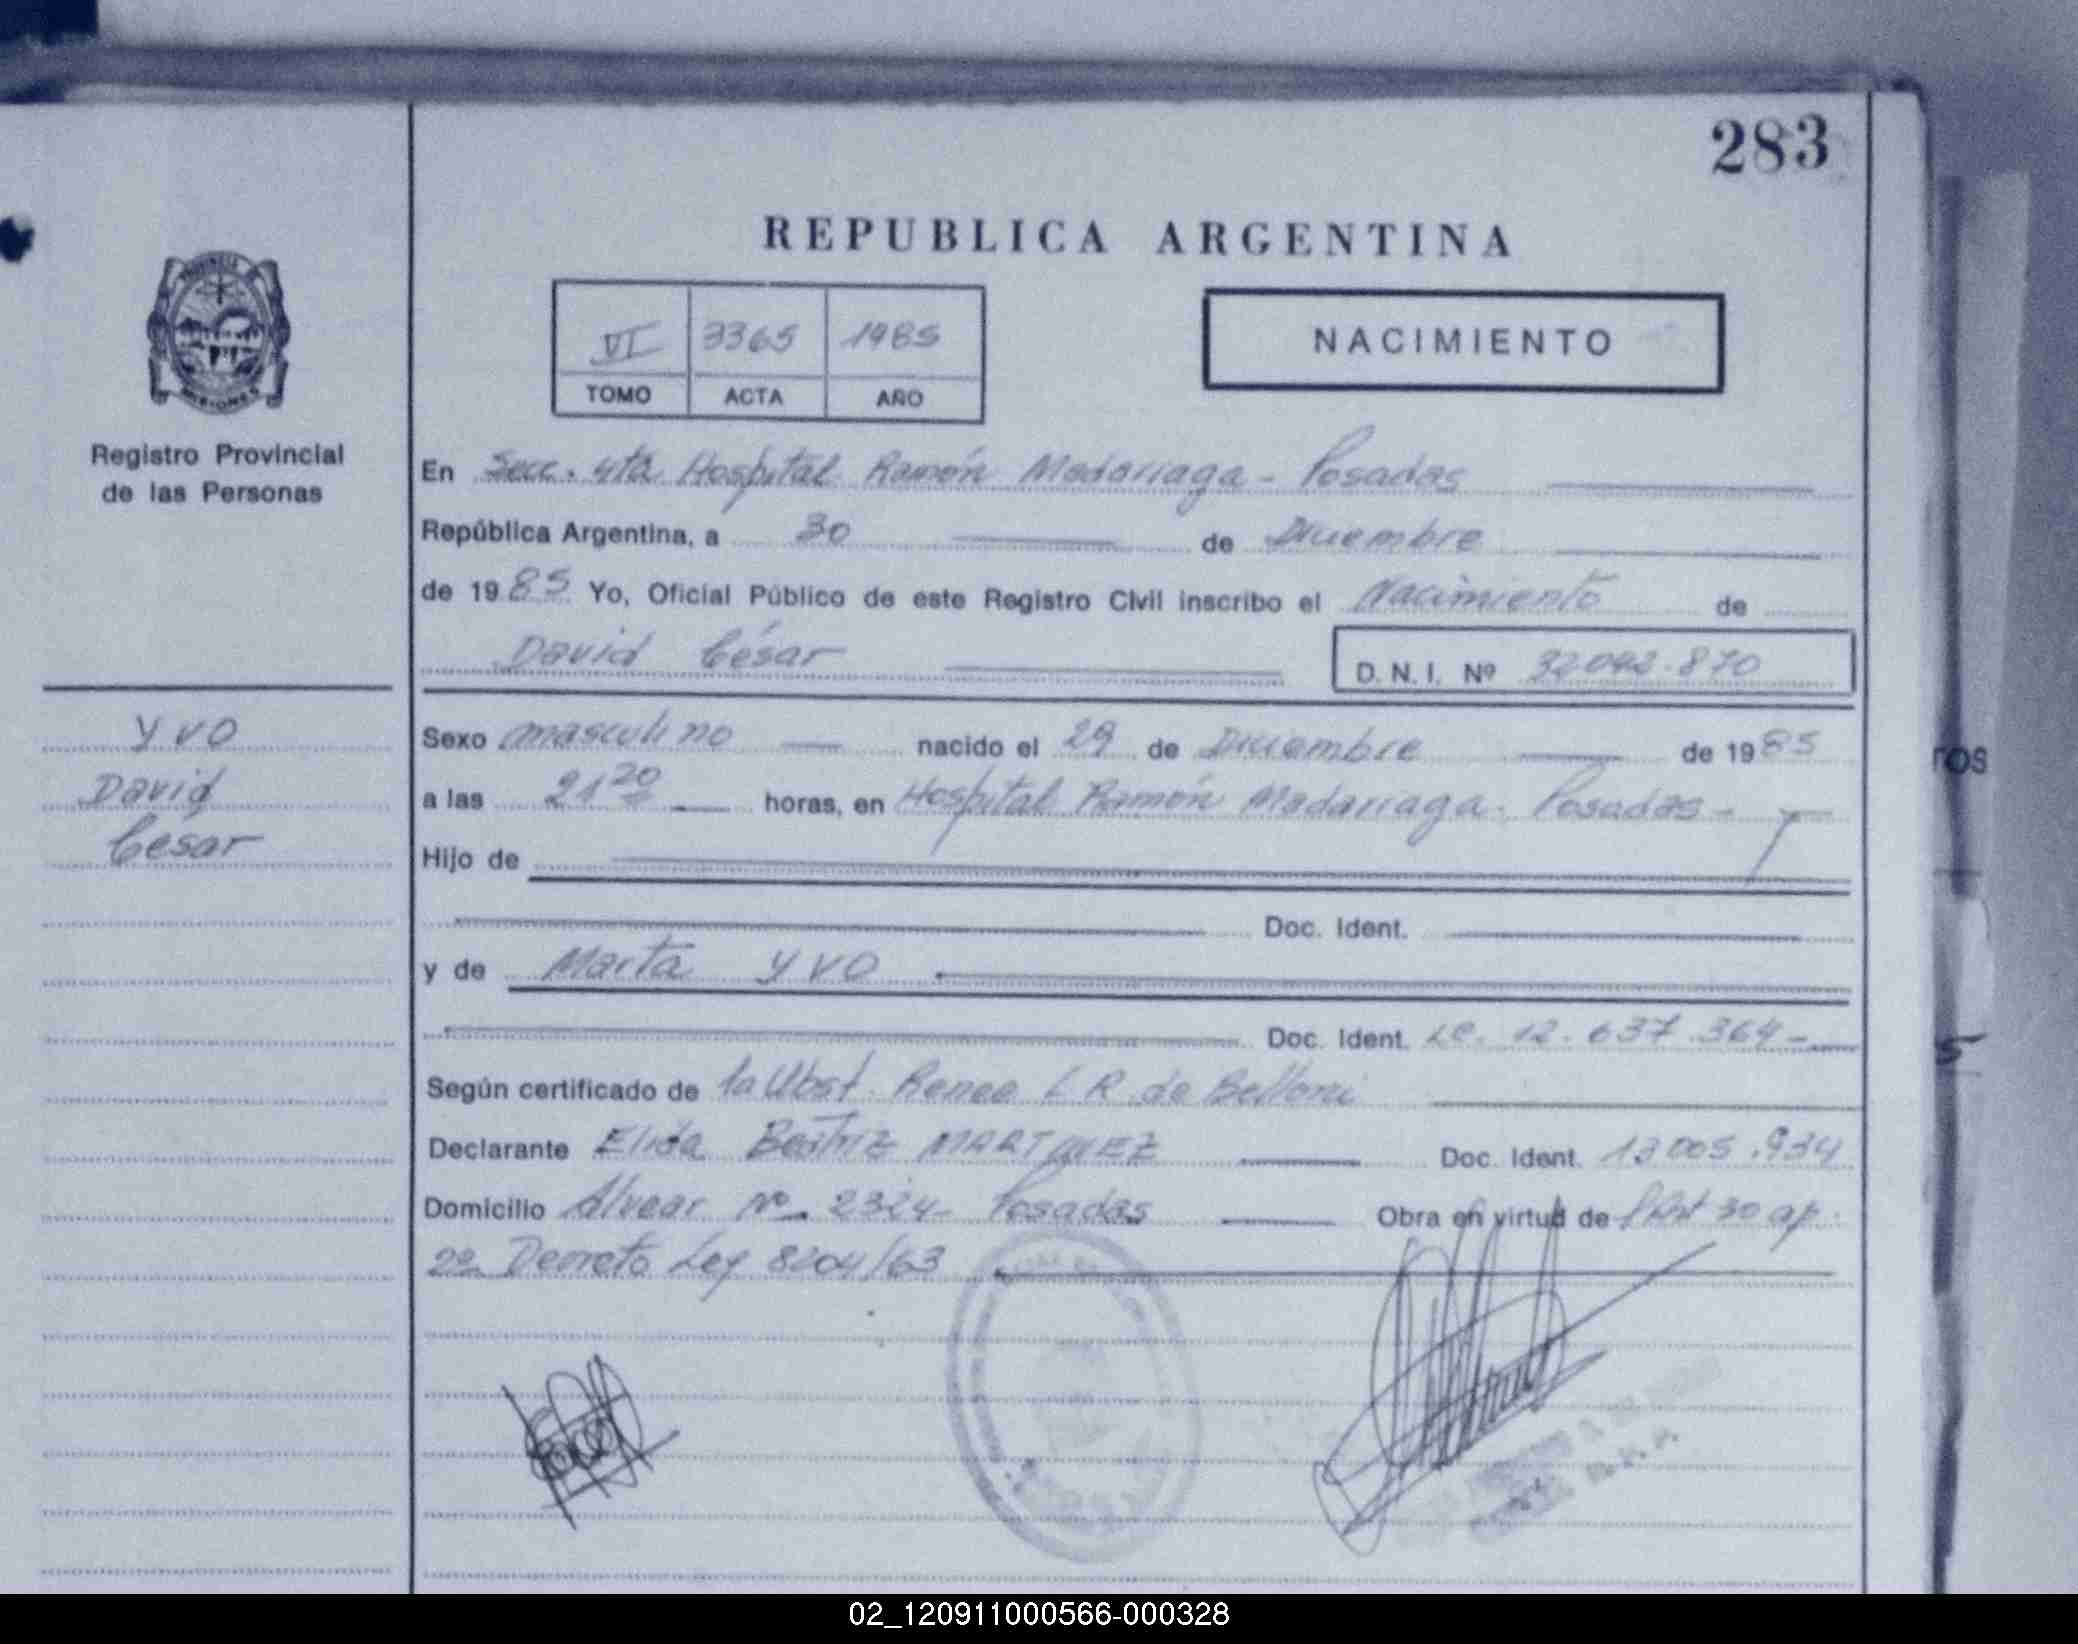 283
REPUBLICA ARGENTINA
VI 3365 1985
TOMO ACTA AÑO
NACIMIENTO
Registro Provincial
de las Personas
En Secc. 4ta Hospital Ramón Madariaga - Posadas
República Argentina, a 30 de Diciembre
de 1985 Yo, Oficial Público de este Registro Civil inscribo el Nacimiento de
David César D. N. I. Nº 32042.870
YVO
David
Cesar
Sexo masculino nacido el 29 de Diciembre de 1985
a las 21 20 horas, en Hospital Ramón Madariaga - Posadas -
Hijo de
Doc. Ident.
y de Marta YVO
Doc. Ident. LC. 12.637.364 -
Según certificado de la Obst. Renee L R de Belloni
Declarante Elida Beatriz MARTINEZ Doc. Ident. 13005.934
Domicilio Alvear Nº 2324 Posadas Obra en virtud de l'Art 30 ap.
2º Decreto Ley 8204/63
ros
5
02_120911000566-000328